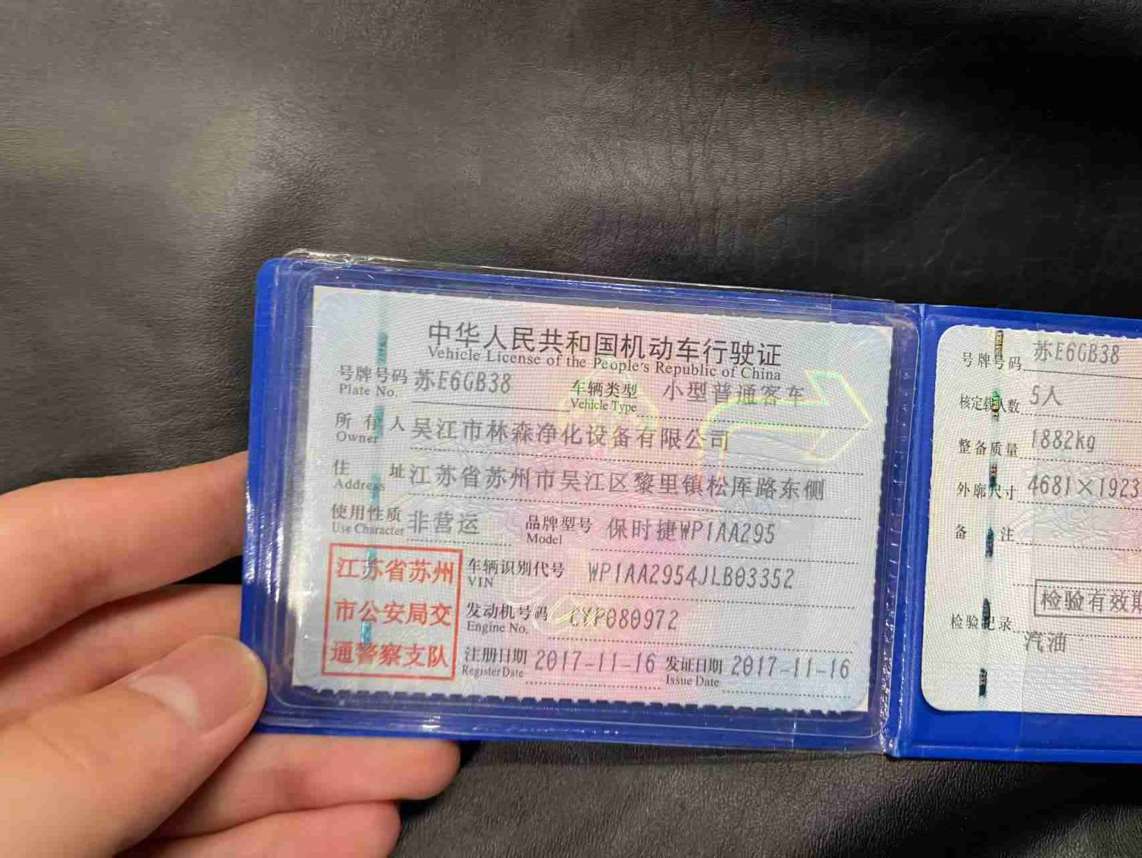 中华人民共和国机动车行驶证
Vehicle License of the People's Republic of China
号牌号码 苏E6GB38 车辆类型 小型普通客车
Plate No. Vehicle Type
所有人 吴江市林森净化设备有限公司
Owner
住址 江苏省苏州市吴江区黎里镇松厍路东侧
Address
使用性质 非营运 品牌型号 保时捷WP1AA295
Use Character Model
江苏省苏州
市公安局交
通警察支队
车辆识别代号 WP1AA2954JLB03352
VIN
发动机号码 CYP080972
Engine No.
注册日期 2017-11-16 发证日期 2017-11-16
Register Date Issue Date
号牌号码 苏E6GB38
核定载人数 5人
整备质量 1882kg
外廓尺寸 4681×1923
备注
检验有效期
检验记录
汽油